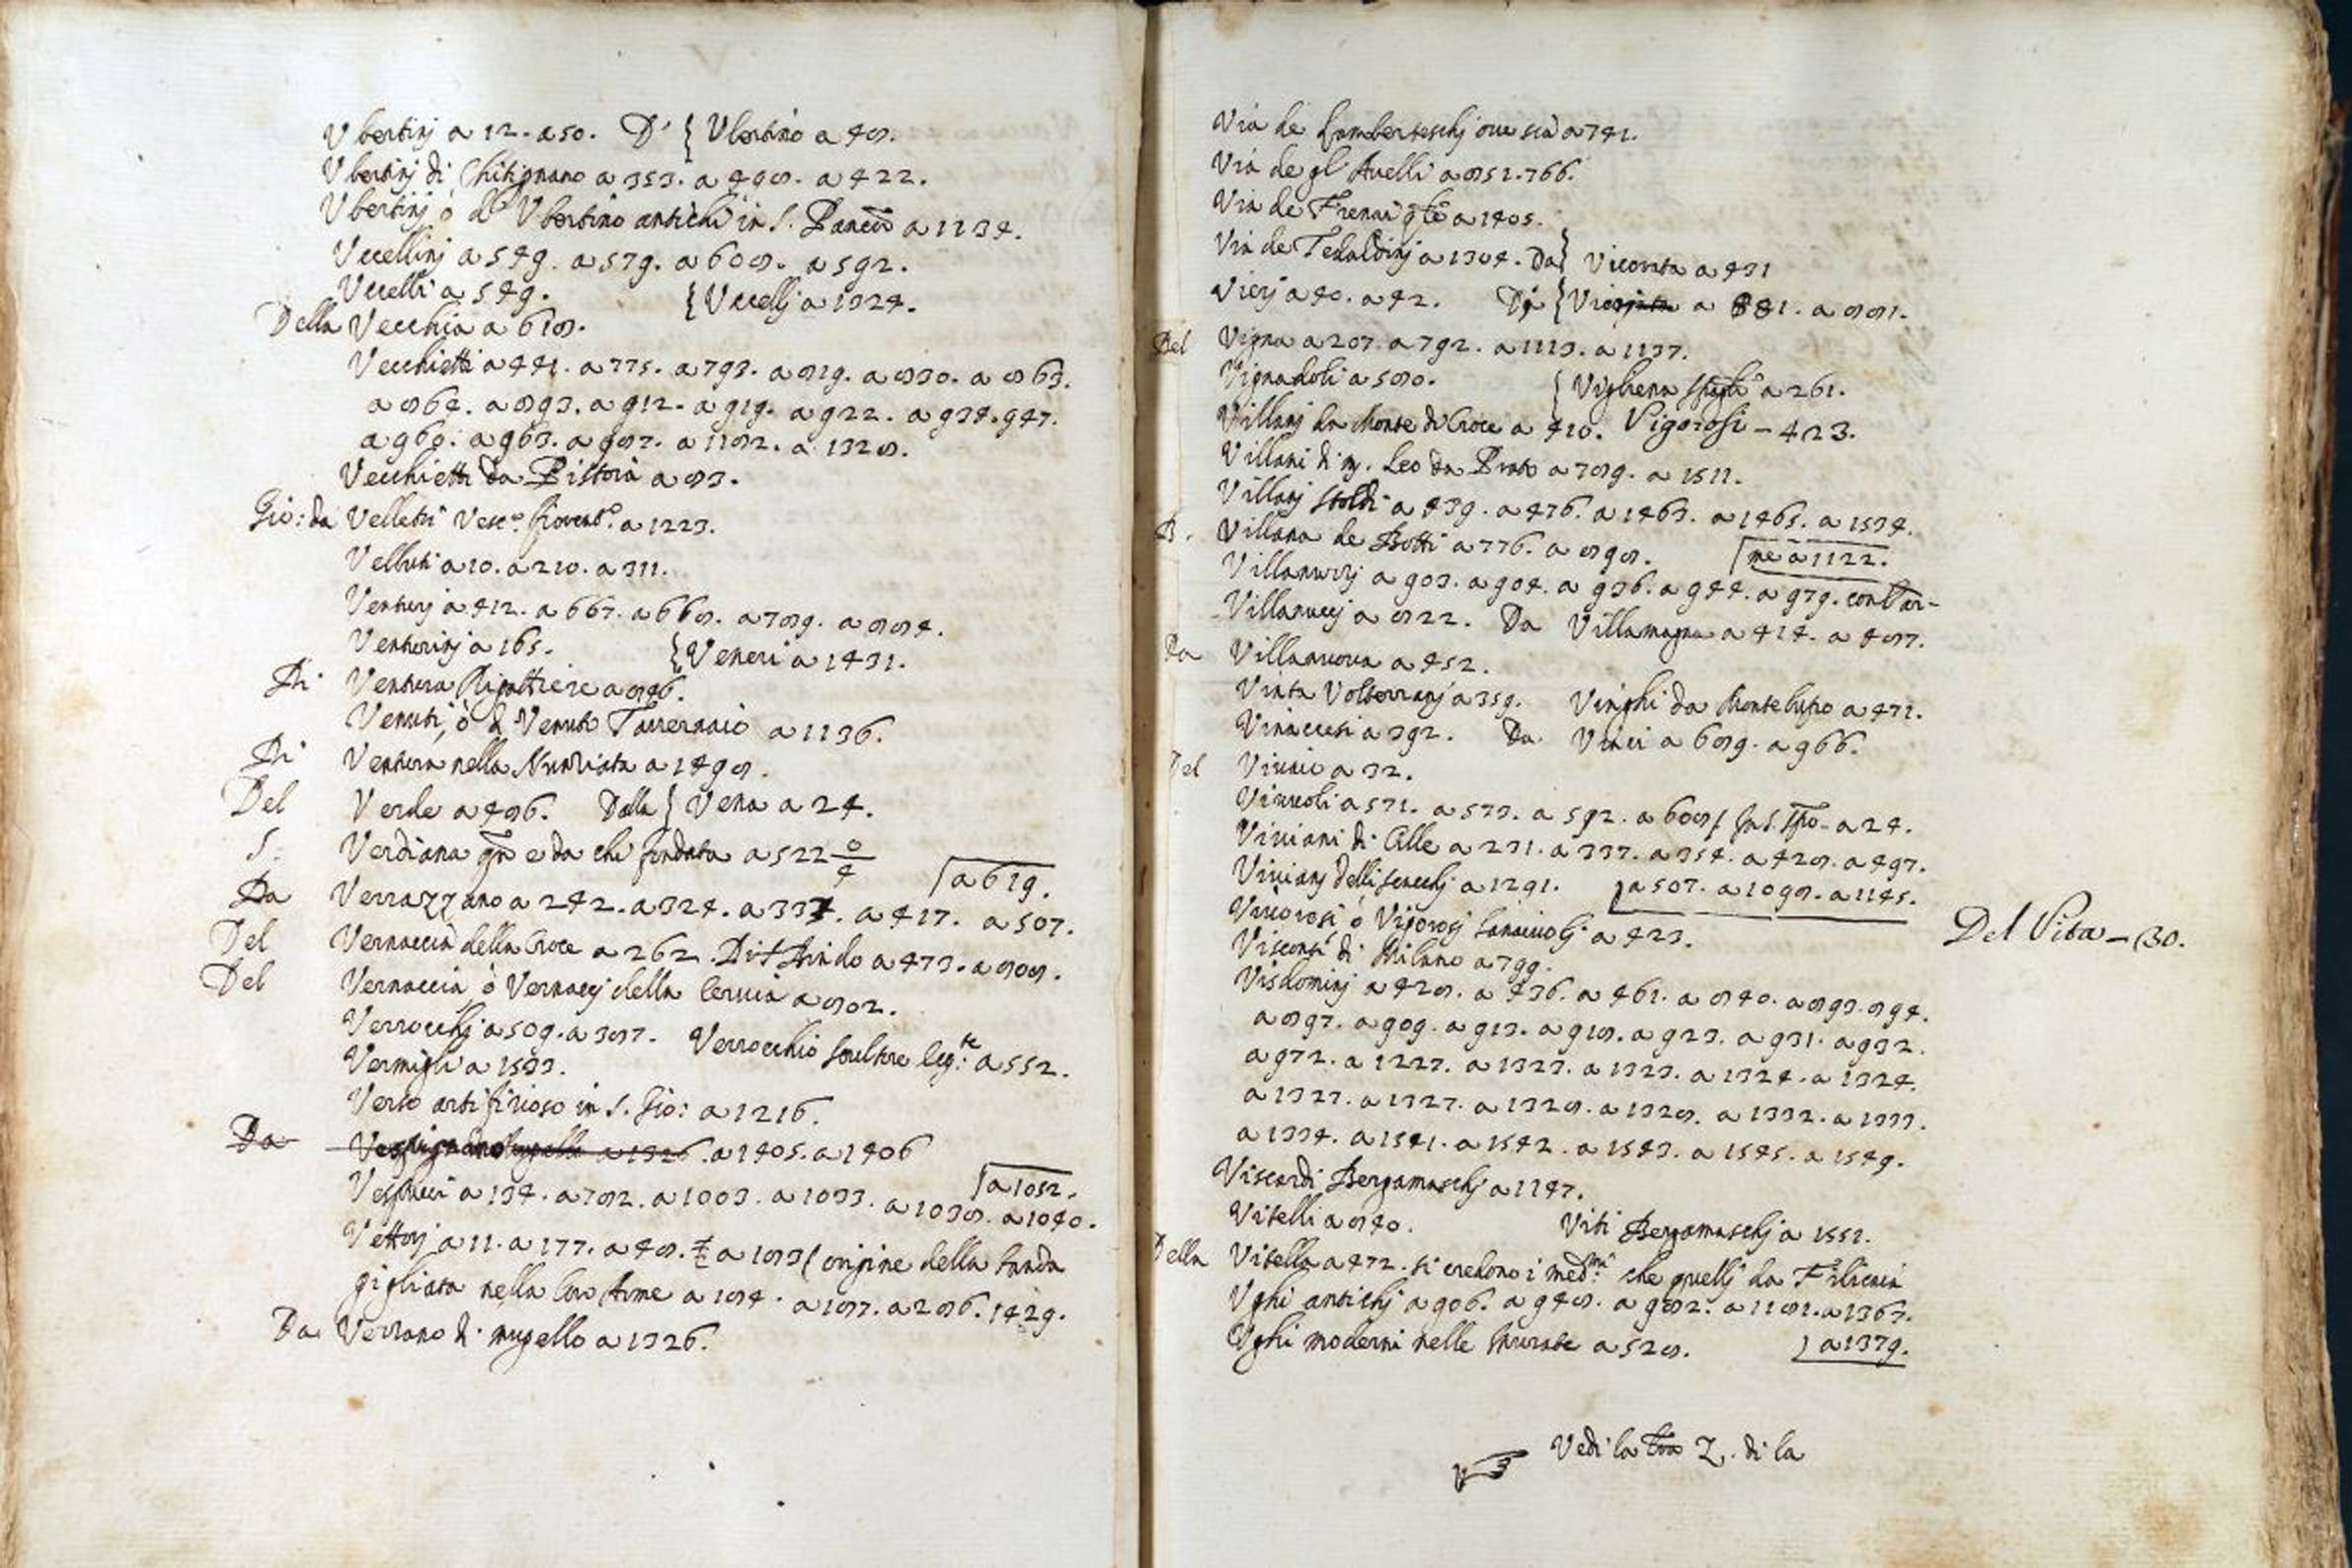 Ubertinj a 12. a 50. D' { Ubertino a 48.
Ubertinj di Chitignano a 353. a 498. a 422.
Ubertinj ò d' Ubertino antichi in S. Pancº a 1134.
Uccellinj a 549. a 579. a 608. a 592.
Uccelli a 549. { Uccellj a 1324.
Della Vecchia a 618.
Vecchietti a 441. a 775. a 793. a 819. a 830. a 863.
a 864. a 893. a 912. a 919. a 922. a 934. 947.
a 960. a 963. a 987. a 1182. a 1328.
Vecchietti da Pistoia a 83.
Gio: da Velletri Vescº fiorentº. a 1223.
Velluti a 10. a 210. a 311.
Venturj a 412. a 667. a 668. a 789. a 884.
Venturinj a 165. { Veneri a 1431.
Di Ventura Rigattiere a 846.
Venuti, ò d' Venuto Tavernaio a 1136.
Di Ventura nella Nunziata a 1498.
Del Verde a 486. Della { Vena a 24.
S. Verdiana qn̄ e da chi fondata a 522 0/4
Da Verrazzano a 242. a 324. a 334. a 417. a 507. | a 619.
Del Vernaccia della Croce a 262. Dirº Arindo a 473. a 808.
Del Vernaccia ò Vernaccj della Cervia a 802.
Verrocchj a 509. a 387. Verrocchio scultore leg:te a 552.
Vermigli a 1583.
Verso artifizioso in S. Gio: a 1216.
Da Vespignano Mugello a 1326. a 1405. a 1406
Vespucci a 134. a 782. a 1003. a 1033. a 1038. a 1040. | a 1052.
Vettorj a 11. a 177. a 48. a 183 ( origine della banda
gigliata nella loro Arme a 184. a 187. a 286. 1429.
Da Verrano di mugello a 1326.
Via de Lamberteschj ove sia a 741.
Via de gl' Avelli a 851. 766.
Via de Frenai a 1405.
Via de Tebaldinj a 1304. Da } Vicorata a 431
Vierj a 40. a 42. Di { a 881. a 881.
Del Vigna a 207. a 792. a 1113. a 1137.
Vignadoli a 580. { Vighena a 261.
Villanj da Monte di Croce a 410. Vigorosi - 423.
Villani di M. Leo da Prato a 789. a 1511.
Villanj Stoldi a 439. a 476. a 1463. a 1465. a 1534.
B. Villana de Botti a 776. a 898. | ne a 1122.
Villanuzzj a 903. a 904. a 936. a 944. a 979. conl'ar-
Villanuccj a 822. Da Villamagna a 414. a 487.
Da Villanuova a 452.
Vinta Volterranj a 359. Vinghi da Montelupo a 471.
Vinaccesi a 392. Da Vinci a 689. a 966.
Del Vivaio a 32.
Vinvoli a 571. a 573. a 592. a 608 / In S. a 24.
Viviani di Colle a 231. a 337. a 354. a 428. a 497.
Vivianj dell a 1291. | a 507. a 1098. a 1145.
Vivorosi ò Vigorosj Lanaiuolj a 423.
Del Vita - 30.
Visconti di Milano a 799.
Visdominj a 428. a 436. a 461. a 840. a 893. 894.
a 897. a 909. a 913. a 918. a 923. a 931. a 932.
a 972. a 1227. a 1323. a 1323. a 1324. a 1324.
a 1327. a 1327. a 1328. a 1328. a 1332. a 1333.
a 1334. a 1541. a 1542. a 1543. a 1545. a 1549.
Viscardi Bergamaschj a 1147.
Vitelli a 840. Viti Bergamaschj a 1551.
Della Vitella a 472. si credono i med:mi che quellj da Filicaia
Ughi antichj a 906. a 948. a 982. a 1181. a 1367.
Ughi moderni nelle Murate a 528. ) a 1379.
Vedi la lrā Z. di la